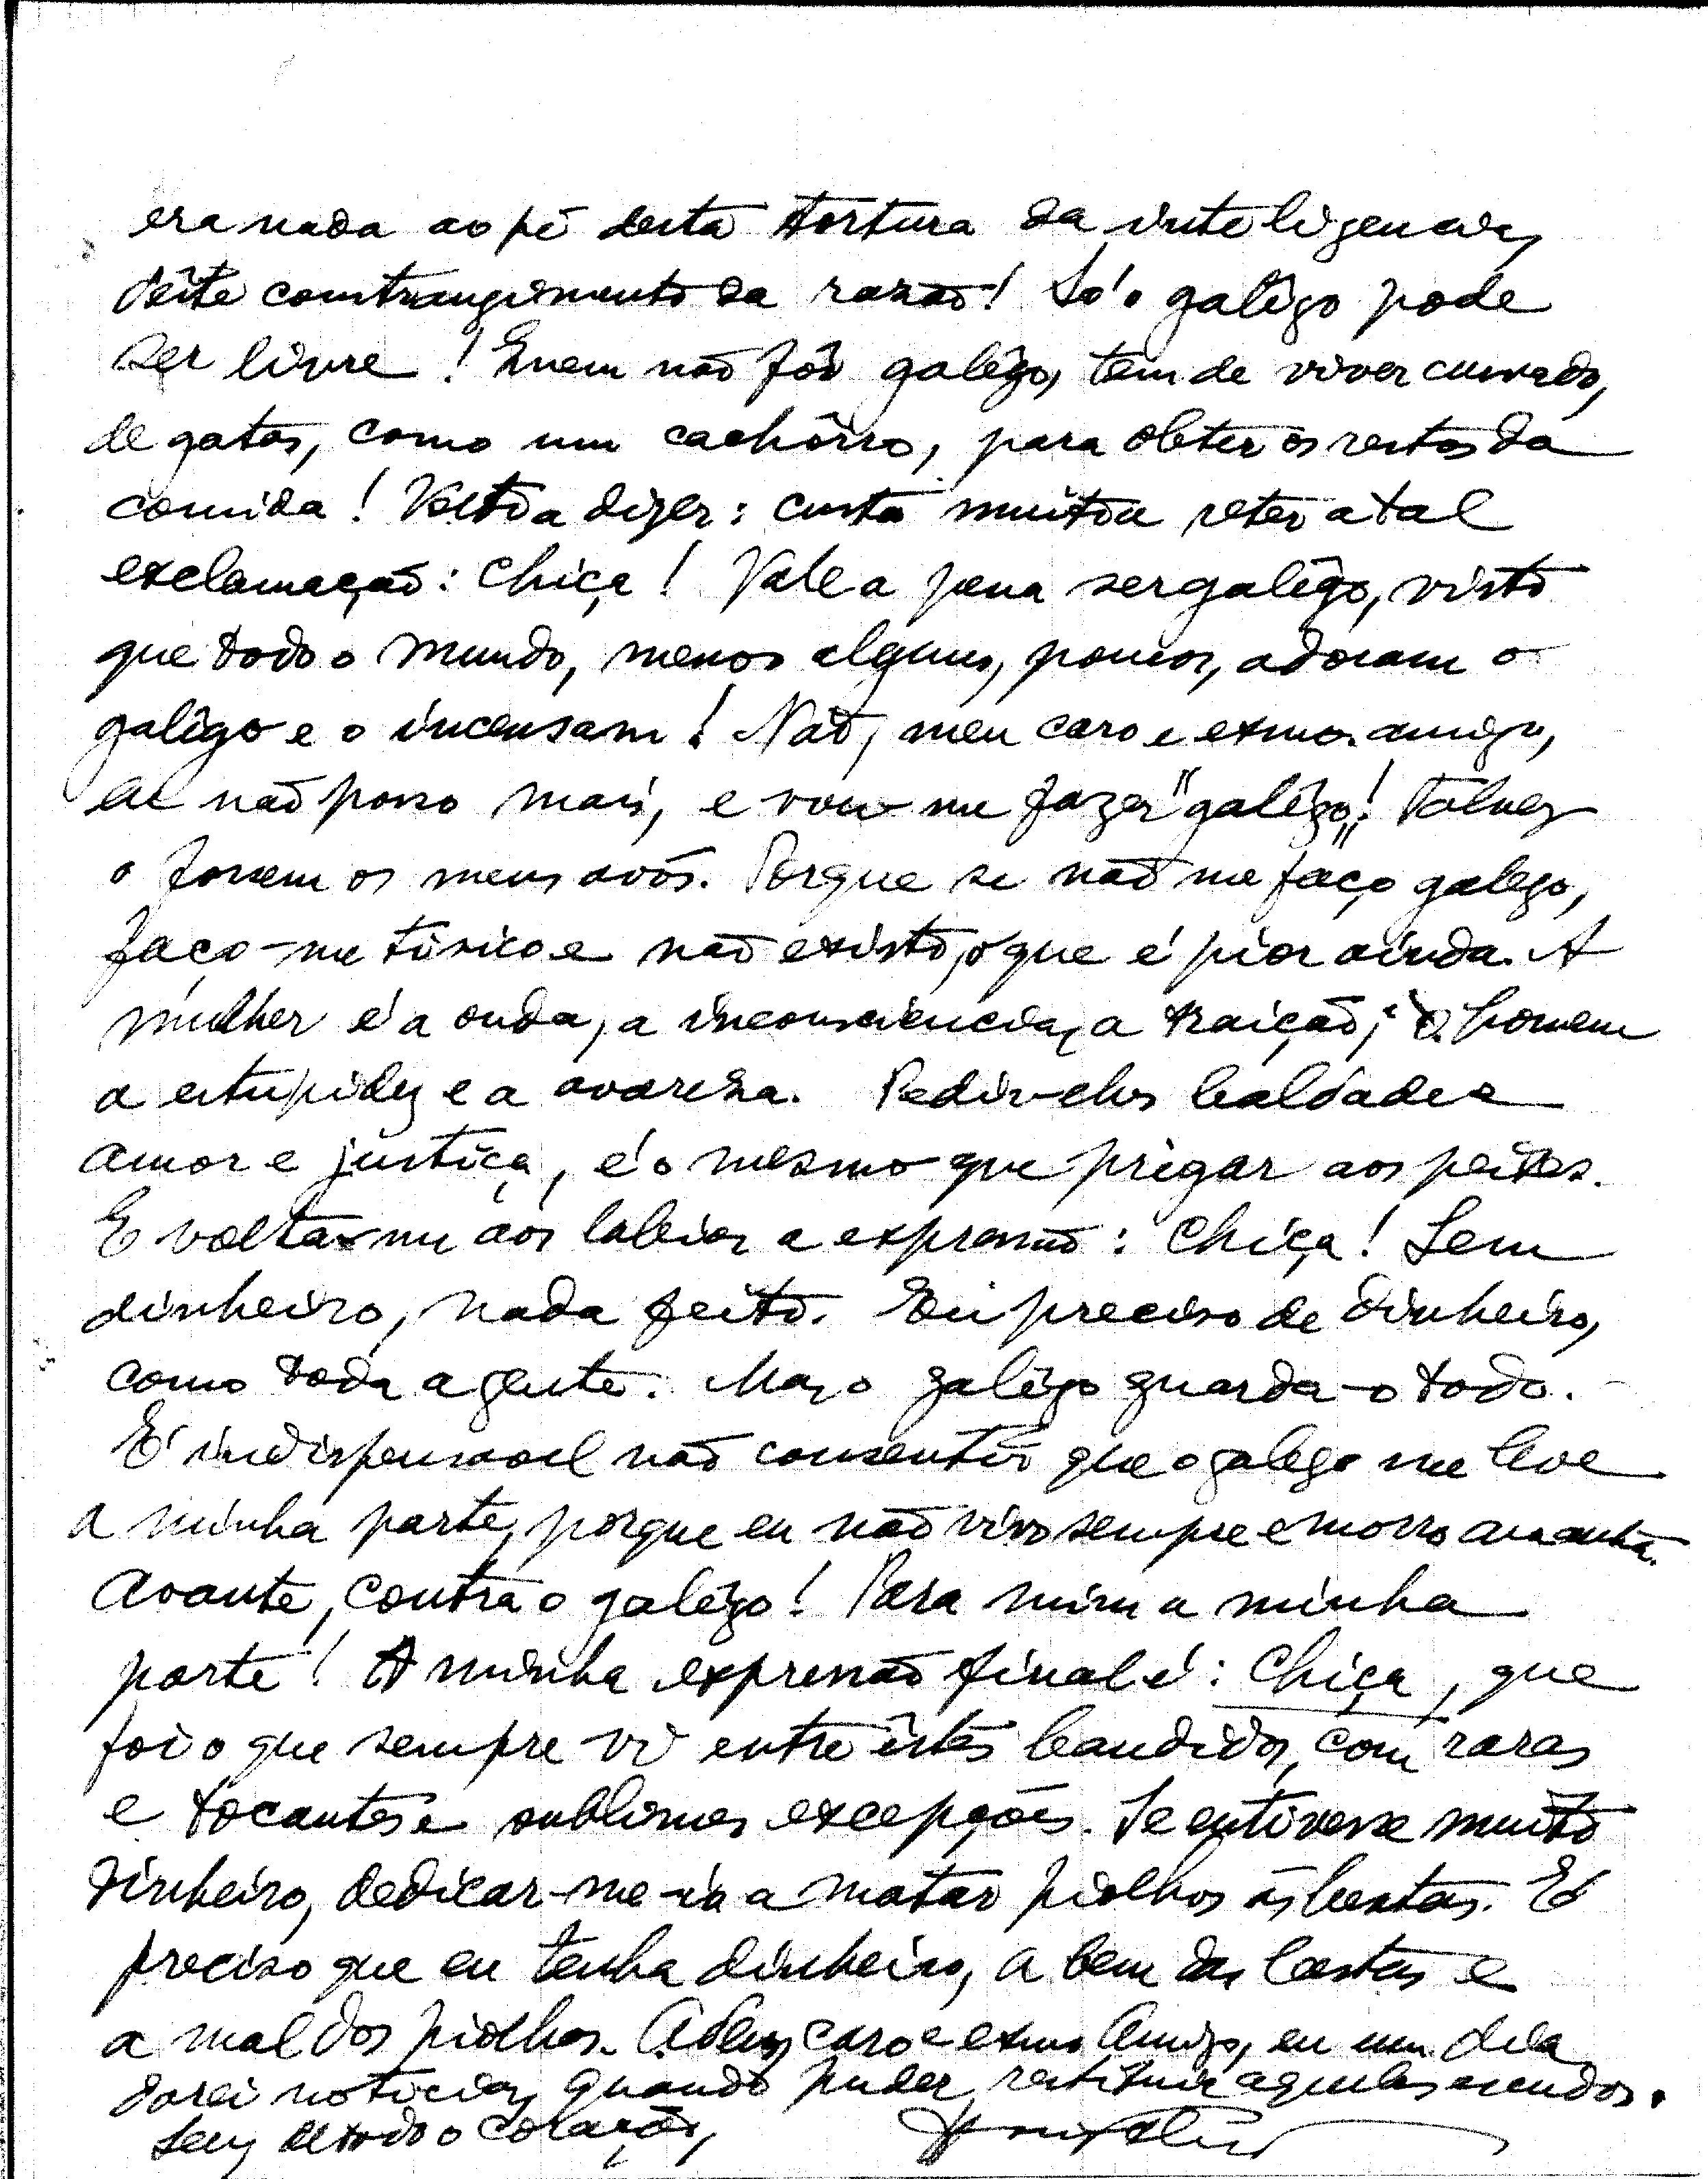 era nada ao pé desta tortura da inteligencia,
dêste constrangimento da razão! Só o galêgo pode
ser livre! Quem não fôr galêgo, tem de viver curvado,
de gatas, como um cachôrro, para obter os restos da
comida! Volto a dizer: custa muito a reter a tal
exclamação: Chiça! Vale a pena ser galêgo, visto
que todo o mundo, menos alguns, poucos, adoram o
galêgo e o incensam! Não, meu caro e exmo. amigo,
eu não posso mais, e vou-me fazer "galêgo"! Talvez
o fossem os meus avós. Porque se não me faço galego,
faço-me tísico e não existo, o que é pior ainda. A
mulher é a onda, a inconsciencia, a traição; o homem
a estupidez e a avareza. Pedir-elhes lealdade e
amor e justiça, é o mesmo que prégar aos peixes.
E volta-me aos labios a expressão: Chiça! Sem
dinheiro, nada feito. Eu preciso de dinheiro,
como toda a gente. Mas o galêgo guarda-o todo.
É indispensavel não consentir que o galego me leve
a minha parte, porque eu não vivo sempre e morro amanhã.
Avante, contra o galêgo! Para mim a minha
parte! A minha expressão final é: Chiça, que
foi o que sempre vi entre êstes bandidos, com raras
e tocantes e sublimes excepções. Se eu tivesse muito
dinheiro, dedicar-me-ia a matar piolhos ás bestas. É
preciso que eu tenha dinheiro, a bem das bestas e
a mal dos piolhos. Adeus, caro e exmo Amigo, eu um dia
darei noticias, quando puder restituir aqueles escudos.
Seu, de todo o coração,